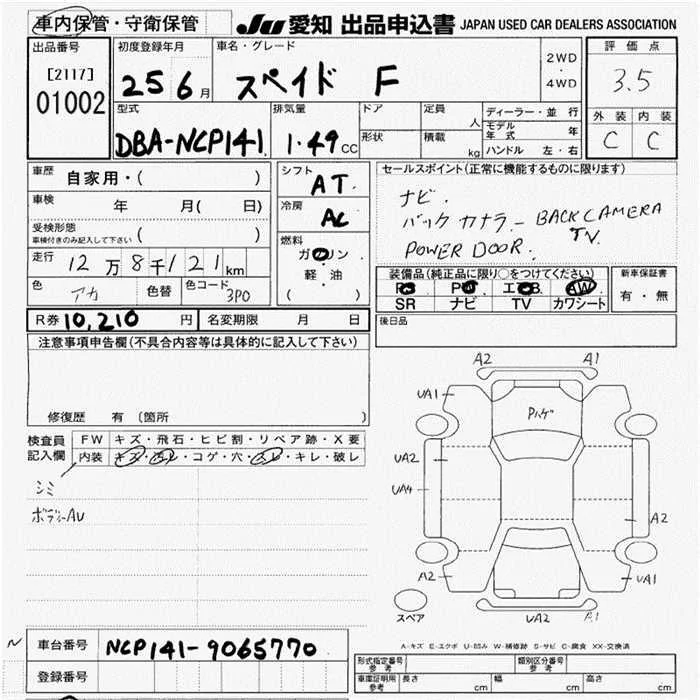 車内保管・守衛保管
JU 愛知 出品申込書 JAPAN USED CAR DEALERS ASSOCIATION
出品番号
[2117]
01002
初度登録年月
25 6月
車名・グレード
スペイド F
2WD
・
4WD
評価点
3.5
外装 内装
C C
型式
DBA-NCP141
排気量
1.49cc
ドア
形状
定員
人
積載
kg
ディーラー・並行
モデル年式 年
ハンドル 左・右
車歴
自家用・( )
車検 年 月( 日)
受検形態
車検付きのみ記入して下さい ( )
走行 12万8千121km
色 アカ 色替 色コード 3P0
シフト
AT
冷房
AC
燃料
ガソリン
・
軽・油
( )
セールスポイント(正常に機能するものに限ります)
ナビ.
バックカナラ- BACK CAMERA
TV.
POWER DOOR.
装備品(純正品に限り○をつけてください)
PS PW エアB AW
SR ナビ TV カワシート
新車保証書
有・無
R券 10,210 円 名変期限 月 日
後日品
注意事項申告欄(不具合内容等は具体的に記入して下さい)
修復歴 有〔箇所 〕
検査員
記入欄
FW キズ・飛石・ヒビ割・リペア跡・X要
内装 キズ・汚レ・コゲ・穴・スレ・キレ・破レ
シミ
ボディーAU
A2 A1
UA1
Pハゲ
UA2
UA4
A2
A2 UA1
スペア
UA2 A1
A-キズ E-エクボ U-凹み W-補修跡 S-サビ C-腐食 XX-交換済
車台番号 NCP141-9065770
登録番号
形式指定番号
参考
類別区分番号
参考
車庫証明用
参考
長さ cm 幅 cm 高さ cm